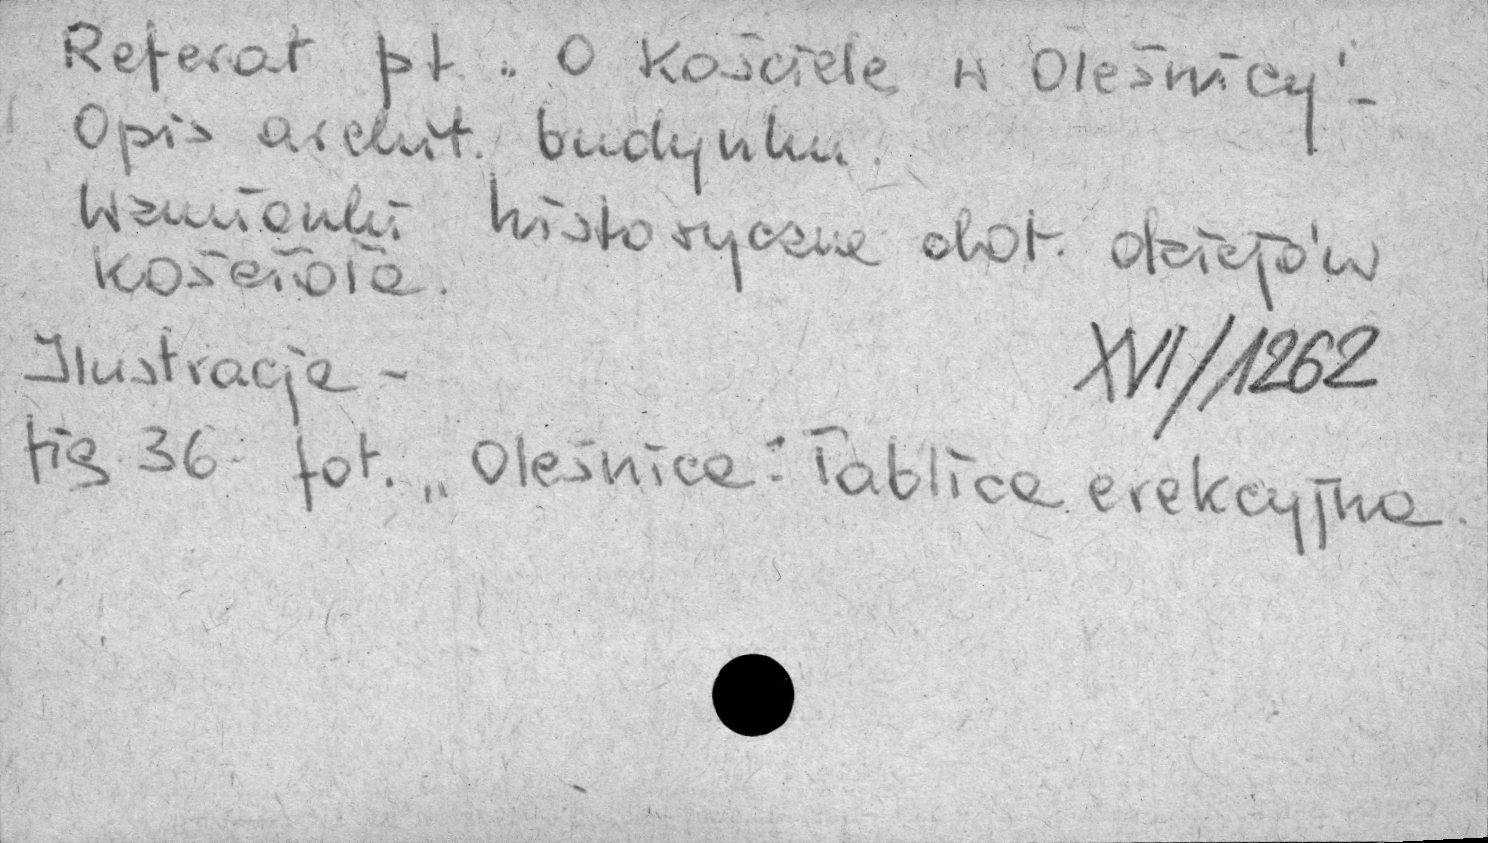 Referat pt. „O Kościele w Oleśnicy" -
Opis archit. budynku.
Wzmianki historyczne dot. dziejów
kościoła.
Ilustracje -
fig 36. fot. „Oleśnica: Tablica erekcyjna.
XVI/1262